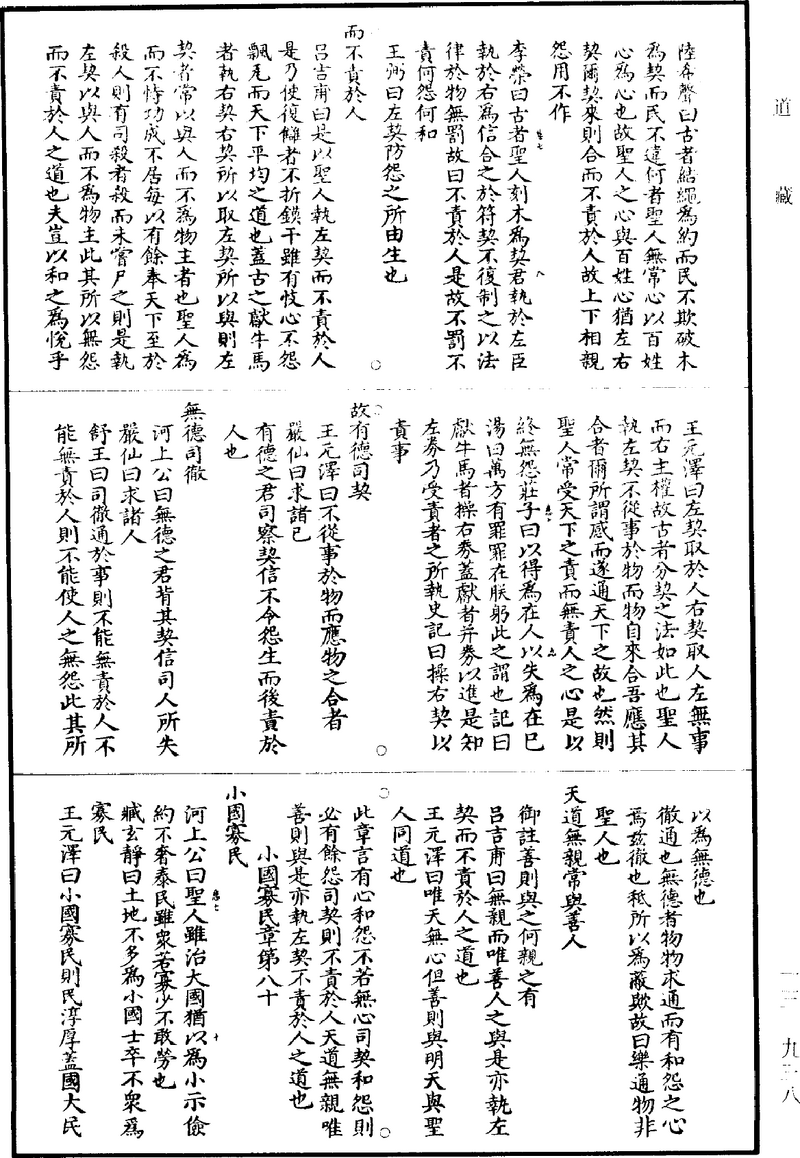 道藏
陸希聲曰古者結繩為約而民不欺破木
為契而民不違何者聖人無常心以百姓
心為心也故聖人之心與百姓心猶左右
契爾契來則合而不責於人故上下相親
怨用不作
李榮曰古者聖人刻木為契君執於左臣
執於右為信合之於符契不復制之以法
律於物無罰故曰不責於人是故不罰不
責何怨何和
王弼曰左契防怨之所由生也
而不責於人
呂吉甫曰是以聖人執左契而不責於人
是乃使復讎者不折鏌干雖有忮心不怨
飄瓦而天下平均之道也蓋古之獻牛馬
者執右契右契所以取左契所以與則左
契者常以與人而不為物主者也聖人為
而不恃功成不居每以有餘奉天下至於
殺人則有司殺者殺而未嘗尸之則是執
左契以與人而不為物主此其所以無怨
而不責於人之道也夫豈以和之為悅乎
王元澤曰左契取於人右契取人左無事
而右主權故古者分契之法如此也聖人
執左契不從事於物而物自來合吾應其
合者爾所謂感而遂通天下之故也然則
聖人常受天下之責而無責人之心是以
終無怨莊子曰以得為在人以失為在己
湯曰萬方有罪罪在朕躬此之謂也記曰
獻牛馬者操右券蓋獻者并券以進是知
左券乃受責者之所執史記曰操右契以
責事
故有德司契
王元澤曰不從事於物而應物之合者
嚴仙曰求諸己
有德之君司察契信不令怨生而後責於
人也
無德司徹
河上公曰無德之君背其契信司人所失
嚴仙曰求諸人
舒王曰司徹通於事則不能無責於人不
能無責於人則不能使人之無怨此其所
以為無德也
徹通也無德者物物求通而有和怨之心
焉茲徹也秪所以為蔽歟故曰樂通物非
聖人也
天道無親常與善人
御註善則與之何親之有
呂吉甫曰無親而唯善人之與是亦執左
契而不責於人之道也
王元澤曰唯天無心但善則與明天與聖
人同道也
此章言有心和怨不若無心司契和怨則
必有餘怨司契則不責於人天道無親唯
善則與是亦執左契不責於人之道也
小國寡民章第八十
小國寡民
河上公曰聖人雖治大國猶以為小示儉
約不奢泰民雖衆若寡少不敢勞也
臧玄靜曰土地不多為小國士卒不衆為
寡民
王元澤曰小國寡民則民淳厚蓋國大民